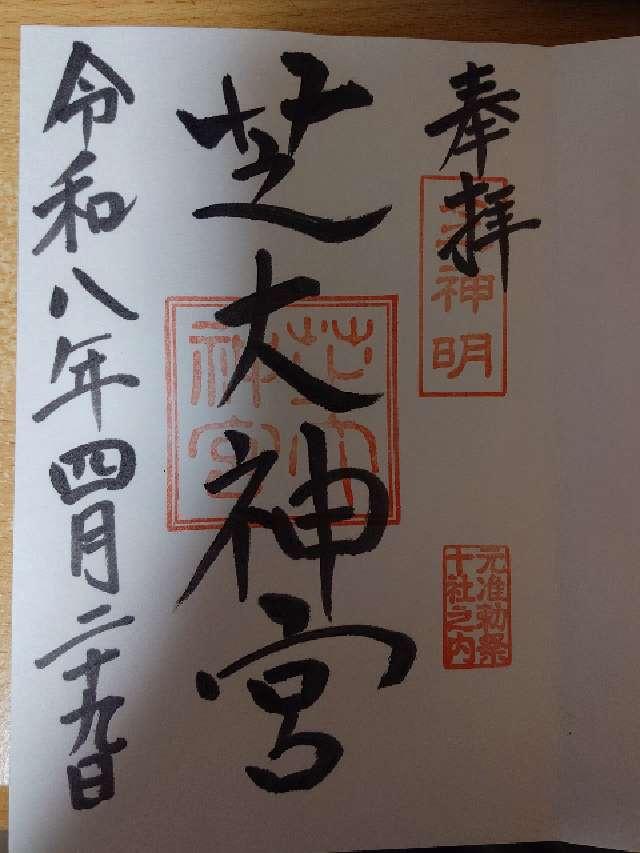 奉拝
芝神明
元准勅祭
十社之内
芝大神宮
芝大
神宮
令和八年四月二十九日